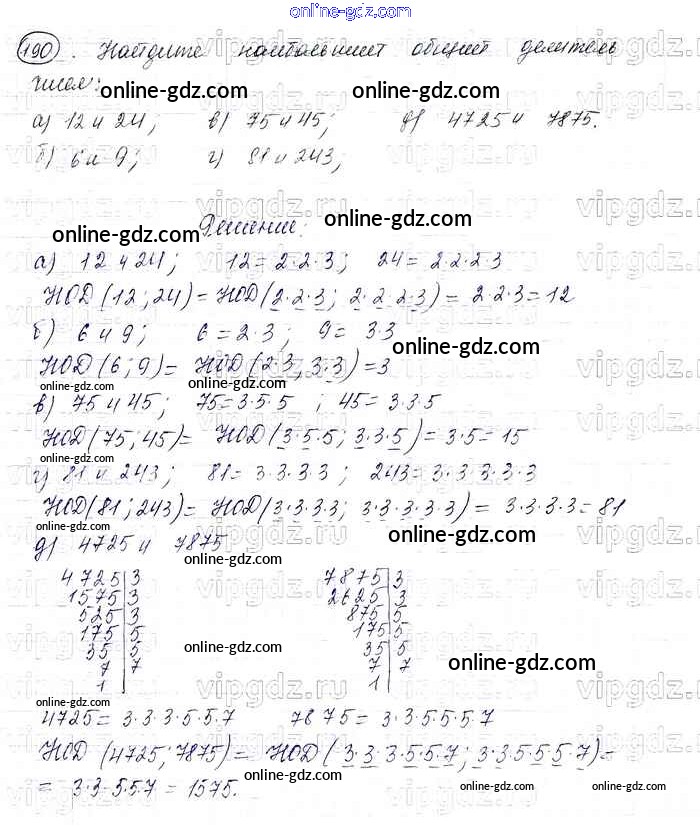 online-gdz.com
190. Найдите наибольший общий делитель
чисел:
online-gdz.com online-gdz.com
а) 12 и 24; в) 75 и 45; д) 4725 и 7875.
б) 6 и 9; г) 81 и 243;
online-gdz.com online-gdz.com
Решение:
а) 12 и 24; 12 = 2·2·3; 24 = 2·2·2·3
НОД(12; 24) = НОД(2·2·3; 2·2·2·3) = 2·2·3 = 12
б) 6 и 9; 6 = 2·3; 9 = 3·3
online-gdz.com
НОД(6; 9) = НОД(2·3, 3·3) = 3
online-gdz.com online-gdz.com online-gdz.com
в) 75 и 45; 75 = 3·5·5; 45 = 3·3·5
НОД(75, 45) = НОД(3·5·5; 3·3·5) = 3·5 = 15
online-gdz.com
г) 81 и 243; 81 = 3·3·3·3; 243 = 3·3·3·3·3
НОД(81; 243) = НОД(3·3·3·3; 3·3·3·3·3) = 3·3·3·3 = 81
online-gdz.com online-gdz.com
д) 4725 и 7875
online-gdz.com
4725|3 7875|3
1575|3 2625|3
525|3 875|5
175|5 175|5
35|5 35|5
7|7 7|7
1| 1|
online-gdz.com online-gdz.com
4725 = 3·3·3·5·5·7 7875 = 3·3·5·5·5·7
НОД(4725; 7875) = НОД(3·3·3·5·5·7; 3·3·5·5·5·7) =
online-gdz.com online-gdz.com
= 3·3·5·5·7 = 1575.
vipgdz.ru